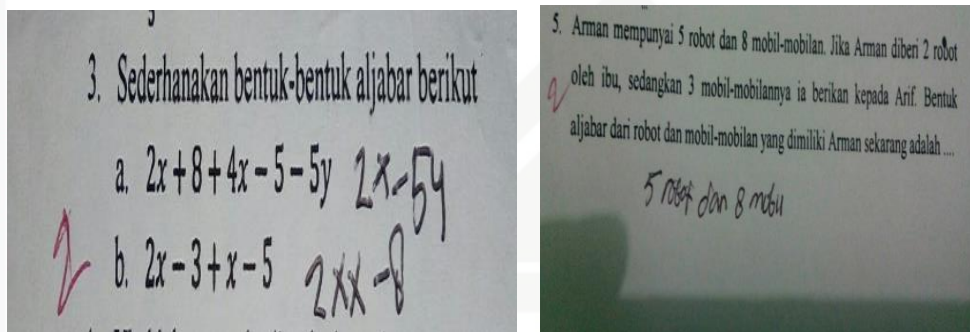 3. Sederhanakan bentuk-bentuk aljabar berikut
a. 2x + 8 + 4x - 5 - 5y 2x-5y
2 b. 2x - 3 + x - 5 2xx -8
5. Arman mempunyai 5 robot dan 8 mobil-mobilan. Jika Arman diberi 2 robot
2 oleh ibu, sedangkan 3 mobil-mobilannya ia berikan kepada Arif. Bentuk
aljabar dari robot dan mobil-mobilan yang dimiliki Arman sekarang adalah ....
5 robot dan 8 mobil